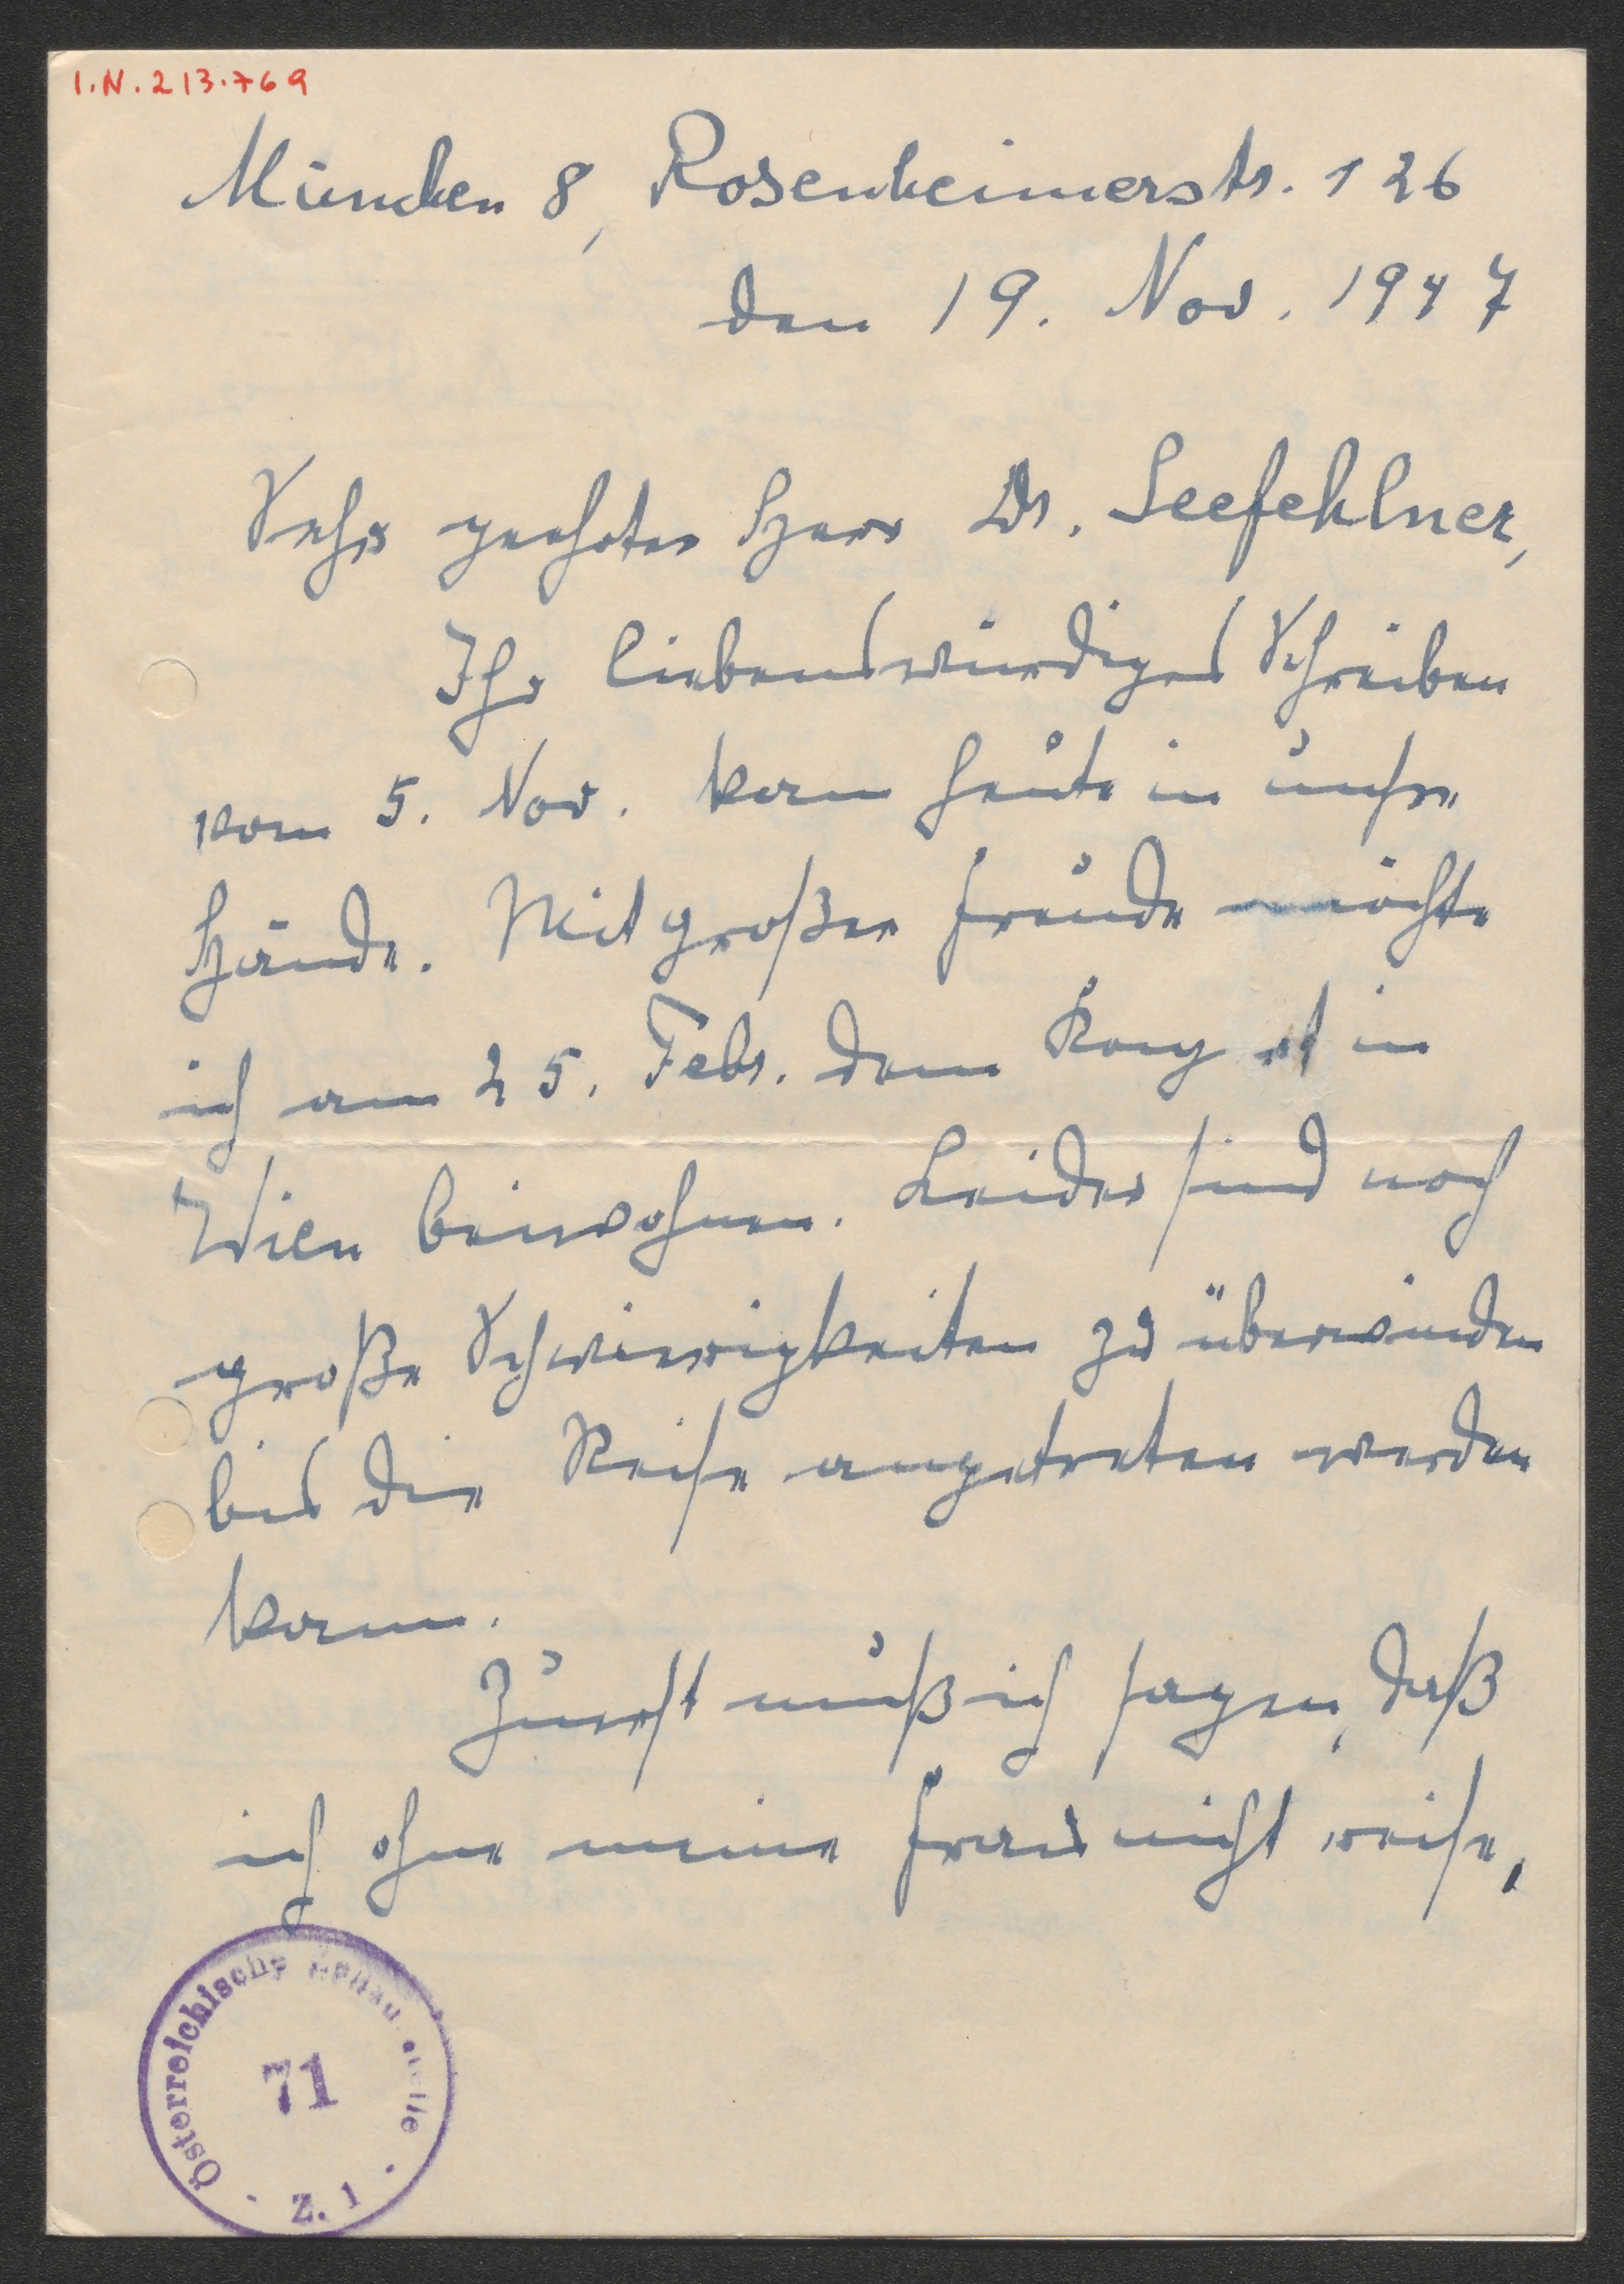 I.N. 213.769
München 8, Rosenheimerstr. 126
den 19. Nov. 1947
Sehr geehrter Herr Dr. Seefehlner,
Ihr liebenswürdiges Schreiben
vom 5. Nov. kam heute in unsre
Hände. Mit großer Freude möchte
ich am 25. Febr. dem Konz et in
Wien beiwohnen. Leider sind noch
große Schwierigkeiten zu überwinden
bis die Reise angetreten werden
kann.
Zuerst muß ich sagen, daß
ich ohne meine Frau nicht reise,
Österreichische Zensurstelle
71
Z. 1